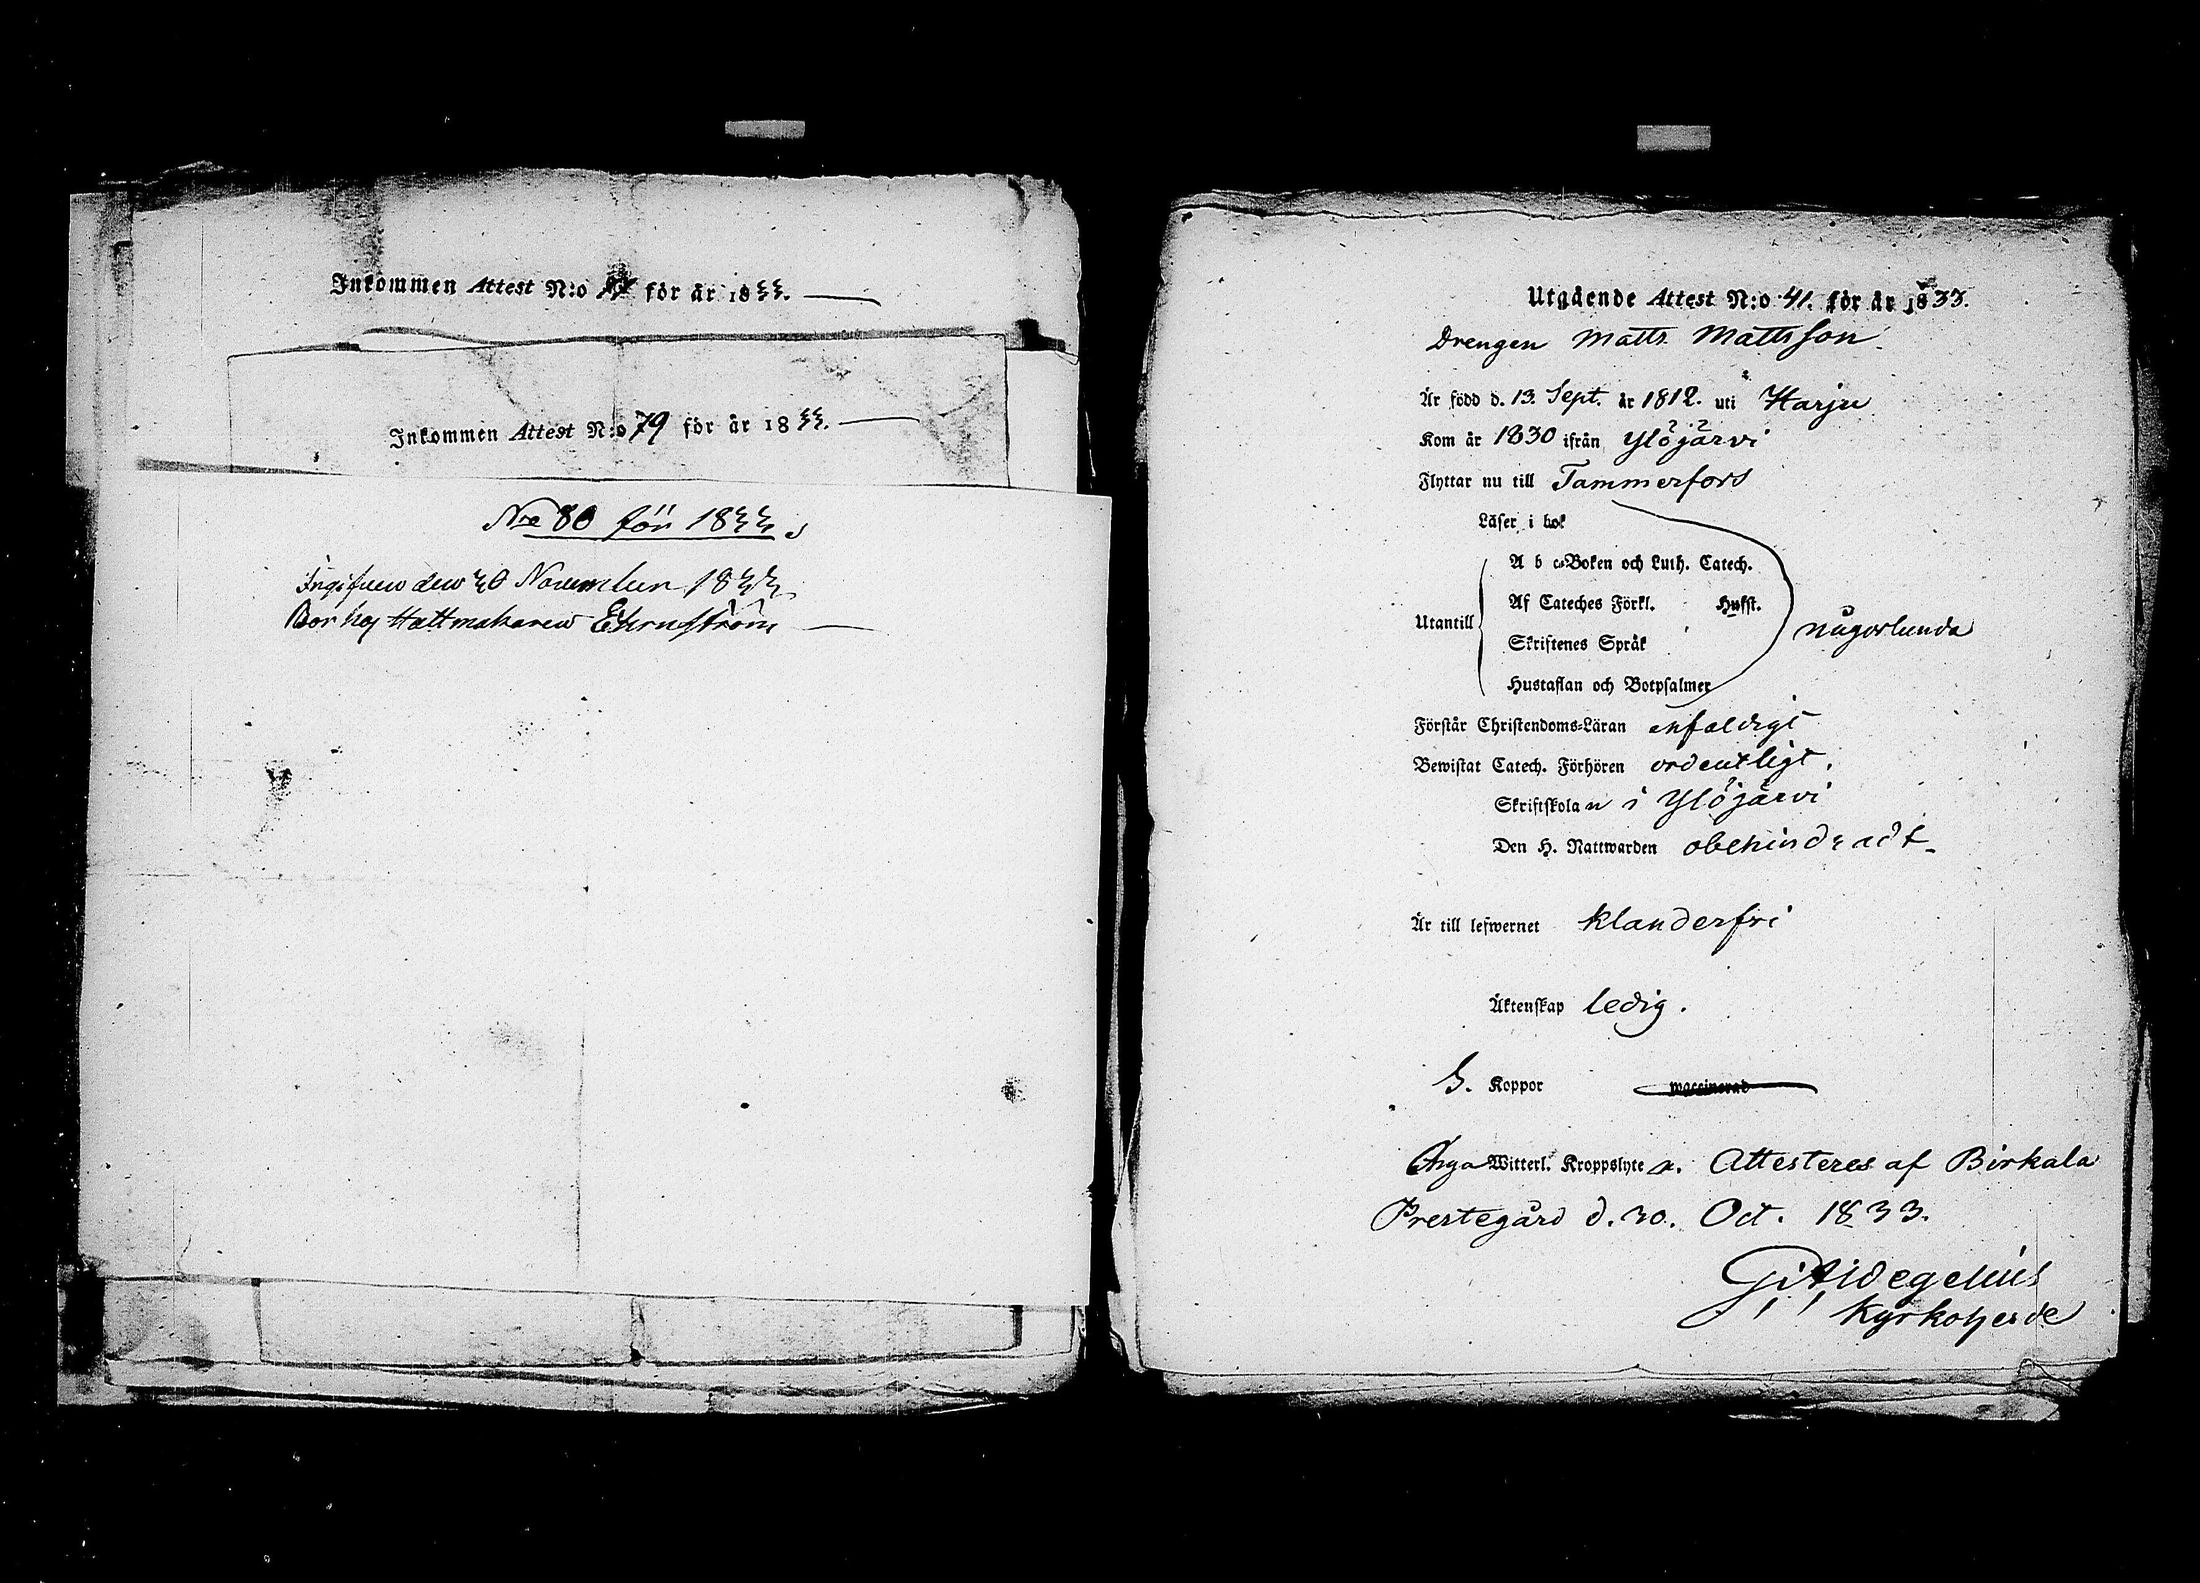 Inkommen Attest N:o för år 1833.
Inkommen Attest N:o 79 för år 1833.
N:o 80 för 1833
Ingifven den 30 November 1833
Bor hos Hattmakaren Ehrnström
Utgående Attest N:o 41. för år 1833.
Drengen Matts Mattsson
Är född d. 13. Sept. år 1812. uti Harju
Kom år 1830 ifrån Ylöjärvi
Flyttar nu till Tammerfors
Läser i bok
A b c-Boken och Luth. Catech.
Af Cateches Förkl. Hufst.
Utantill
någorlunda
Skriftenes Språk
Hustaflan och Botpsalmer
Förstår Christendoms-Läran enfaldigt
Bewistat Catech. Förhören ordentligt.
Skriftskolan i Ylöjärvi
Den H. Nattwarden obehindradt
Är till lefwernet klanderfri
Äktenskap ledig.
H. Koppor waccinerad
Inga Witterl. Kroppslyten. Attesteres af Birkala
Prestegård d. 30. Oct. 1833.
G: Aidegelius
Kyrkoherde